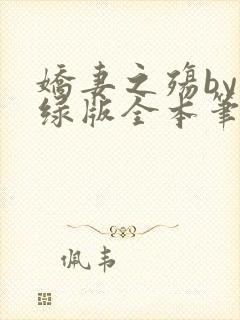 娇妻之殇by
绿版全本笔
佩韦